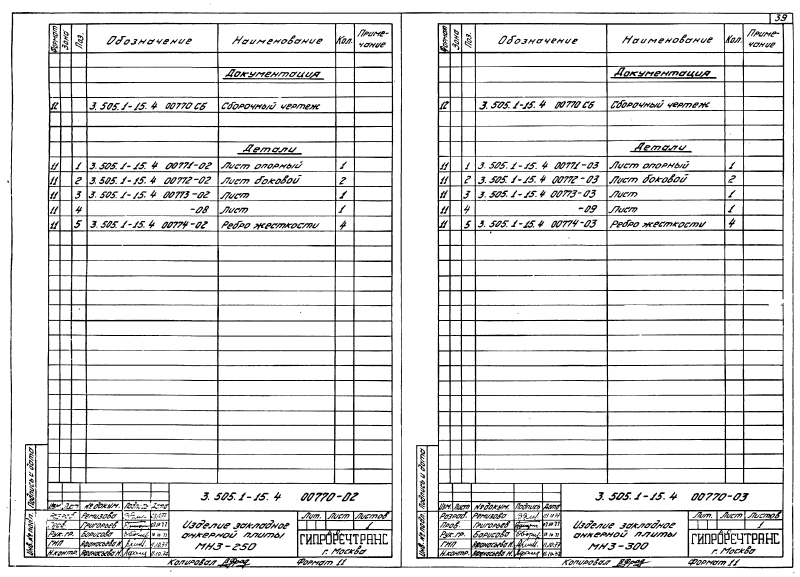 39
Формат Зона Поз. Обозначение Наименование Кол. Примечание
Документация
12 3.505.1-15.4 00770 СБ Сборочный чертеж
Детали
11 1 3.505.1-15.4 00771-02 Лист опорный 1
11 2 3.505.1-15.4 00772-02 Лист боковой 2
11 3 3.505.1-15.4 00773-02 Лист 1
11 4 -08 Лист 1
11 5 3.505.1-15.4 00774-02 Ребро жесткости 4
Подпись и дата
Инв. № подл.
3.505.1-15.4 00770-02
Изм. Лист № докум. Подпись Дата
Разраб. Ремизова
Пров. Григорьев
Рук. гр. Борисова
ГИП Афанасьева Н.
Н.контр. Афанасьева Н.
Изделие закладное
анкерной плиты
МН3-250
Лит. Лист Листов
1
ГИПРОРЕЧТРАНС
г. Москва
Копировал Формат 11
Формат Зона Поз. Обозначение Наименование Кол. Примечание
Документация
12 3.505.1-15.4 00770 СБ Сборочный чертеж
Детали
11 1 3.505.1-15.4 00771-03 Лист опорный 1
11 2 3.505.1-15.4 00772-03 Лист боковой 2
11 3 3.505.1-15.4 00773-03 Лист 1
11 4 -09 Лист 1
11 5 3.505.1-15.4 00774-03 Ребро жесткости 4
Подпись и дата
Инв. № подл.
3.505.1-15.4 00770-03
Изм. Лист № докум. Подпись Дата
Разраб. Ремизова
Пров. Григорьев
Рук. гр. Борисова
ГИП Афанасьева Н.
Н.контр. Афанасьева Н.
Изделие закладное
анкерной плиты
МН3-300
Лит. Лист Листов
1
ГИПРОРЕЧТРАНС
г. Москва
Копировал Формат 11